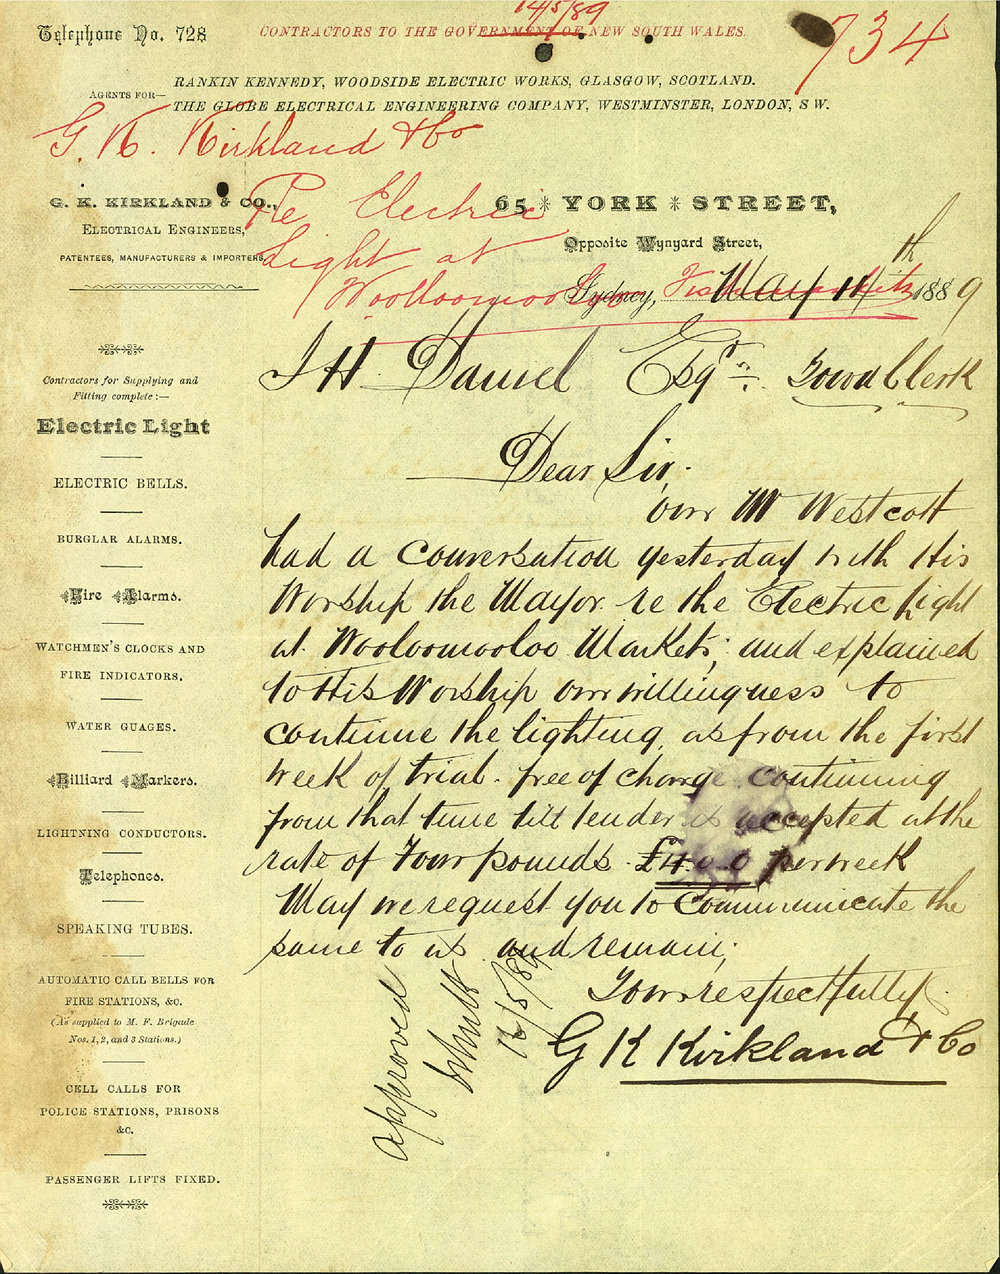 14/5/89
Telephone No. 728
CONTRACTORS TO THE GOVERNMENT OF NEW SOUTH WALES.
734
AGENTS FOR—
RANKIN KENNEDY, WOODSIDE ELECTRIC WORKS, GLASGOW, SCOTLAND.
THE GLOBE ELECTRICAL ENGINEERING COMPANY, WESTMINSTER, LONDON, S W.
G. K. Kirkland & Co
Re Electric
Light at
Woolloomooloo
G. K. KIRKLAND & CO.,
ELECTRICAL ENGINEERS,
PATENTEES, MANUFACTURERS & IMPORTERS.
65 * YORK * STREET,
Opposite Wynyard Street,
Sydney, May 14th 1889
Contractors for Supplying and
Fitting complete:—
Electric Light
ELECTRIC BELLS.
BURGLAR ALARMS.
Fire Alarms.
WATCHMEN'S CLOCKS AND
FIRE INDICATORS.
WATER GUAGES.
Billiard Markers.
LIGHTNING CONDUCTORS.
Telephones.
SPEAKING TUBES.
AUTOMATIC CALL BELLS FOR
FIRE STATIONS, &C.
(As supplied to M. F. Brigade
Nos. 1, 2, and 3 Stations.)
CELL CALLS FOR
POLICE STATIONS, PRISONS
&C.
PASSENGER LIFTS FIXED.
J H Daniel Esqr Town Clerk
Dear Sir,
our Mr Westcott
had a conversation yesterday with His
Worship the Mayor re the Electric light
at Wooloomooloo Markets; and explained
to His Worship our willingness to
continue the lighting, as from the first
week of trial free of charge continuing
from that time till tender is accepted at the
rate of Four pounds £4.0.0 per week
May we request you to communicate the
same to us and remain;
Yours respectfully
G K Kirkland & Co
Approved
16/5/89